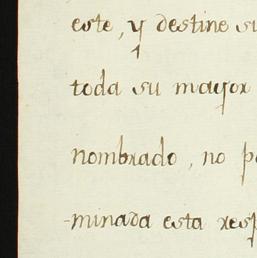 este, y destine su
toda su mayor
nombrado, no p
-minada esta resp